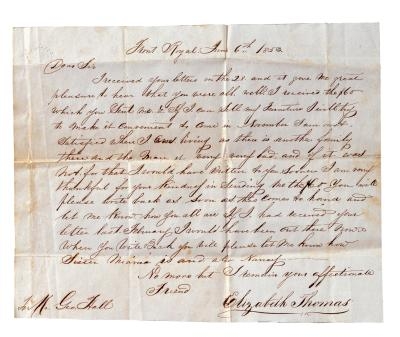 Front Royal June 6th 1852
Dear Sir
I received your letters on the 28 and it give me great
pleasure to hear that you were all well I received the $60
which you Sent me If I can sell my Furniture I will try
to make it convenient to come in November I am not
Satisfied where I was living as there is another family
there and the Man is very very bad and if it was
not for that I would have written to you Sooner I am very
thankful for your kindness in Sending me the You will
please write back as Soon as this comes to hand and
let me know how you all are If I had received your
letter last February I would have been out there Now
When you write back you will please let me know how
Sister is and also Nancy
No more but I remain your affectionate
Friend Elizabeth Thomas
For Mr Geo Hall